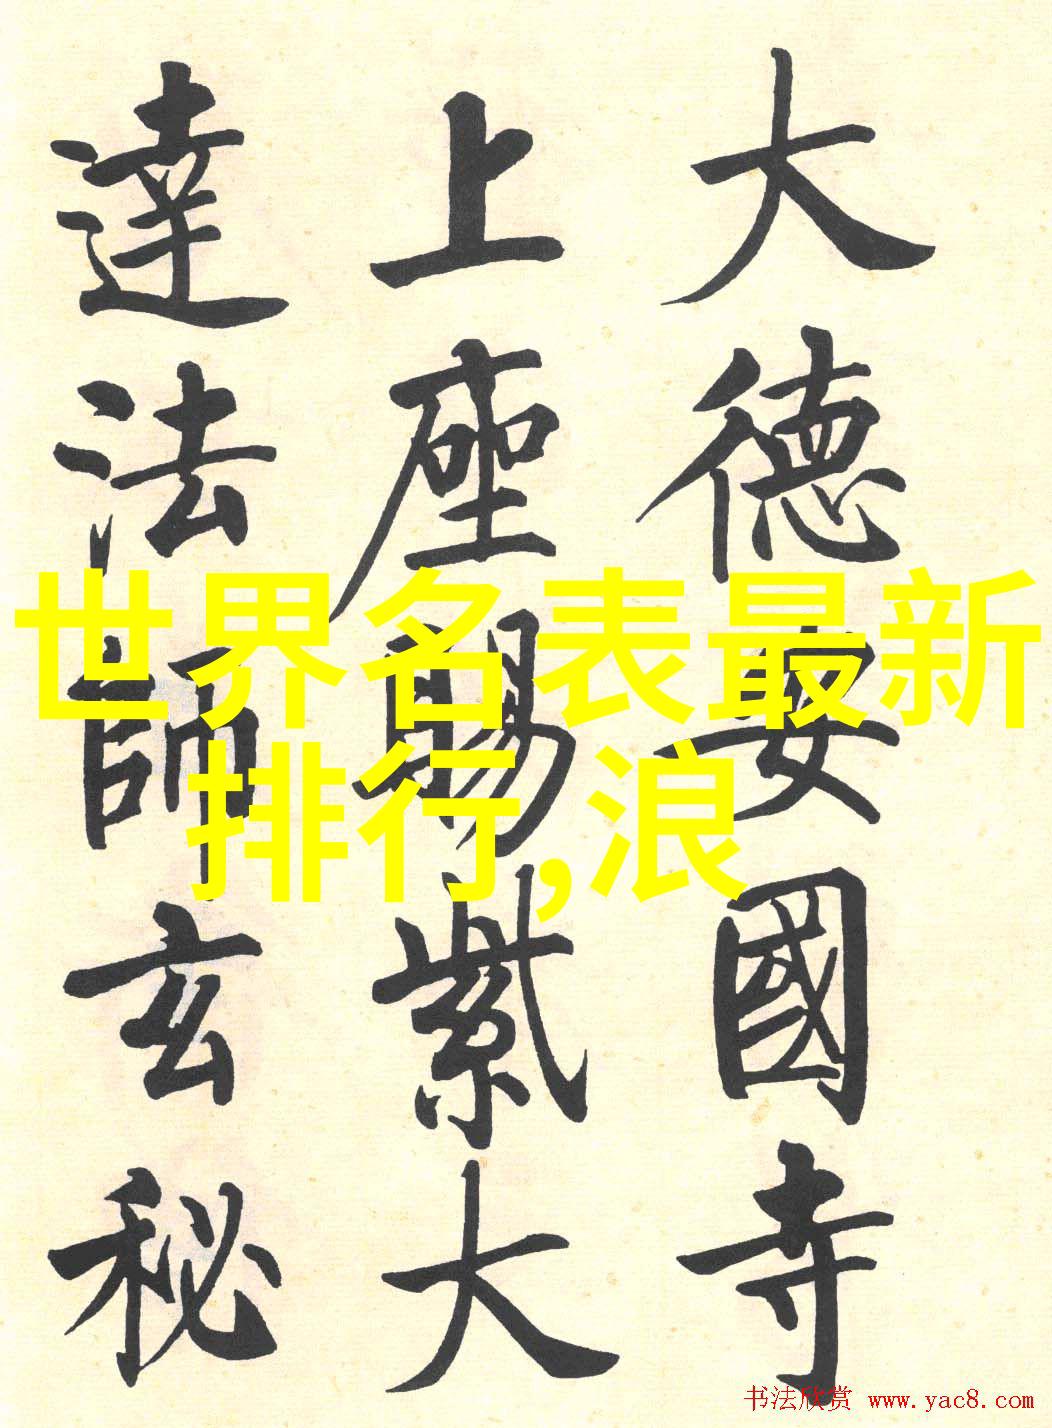 大德安國寺
上座賜紫大
達法師玄秘
世界名表最新
排行,浪
书法欣赏 www.yac8.com